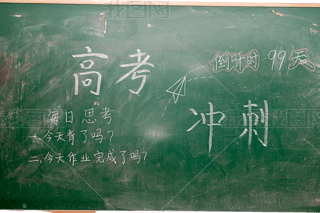 倒计时:99天
高考
冲刺
每日思考
一.今天有了吗?
二.今天作业完成了吗?